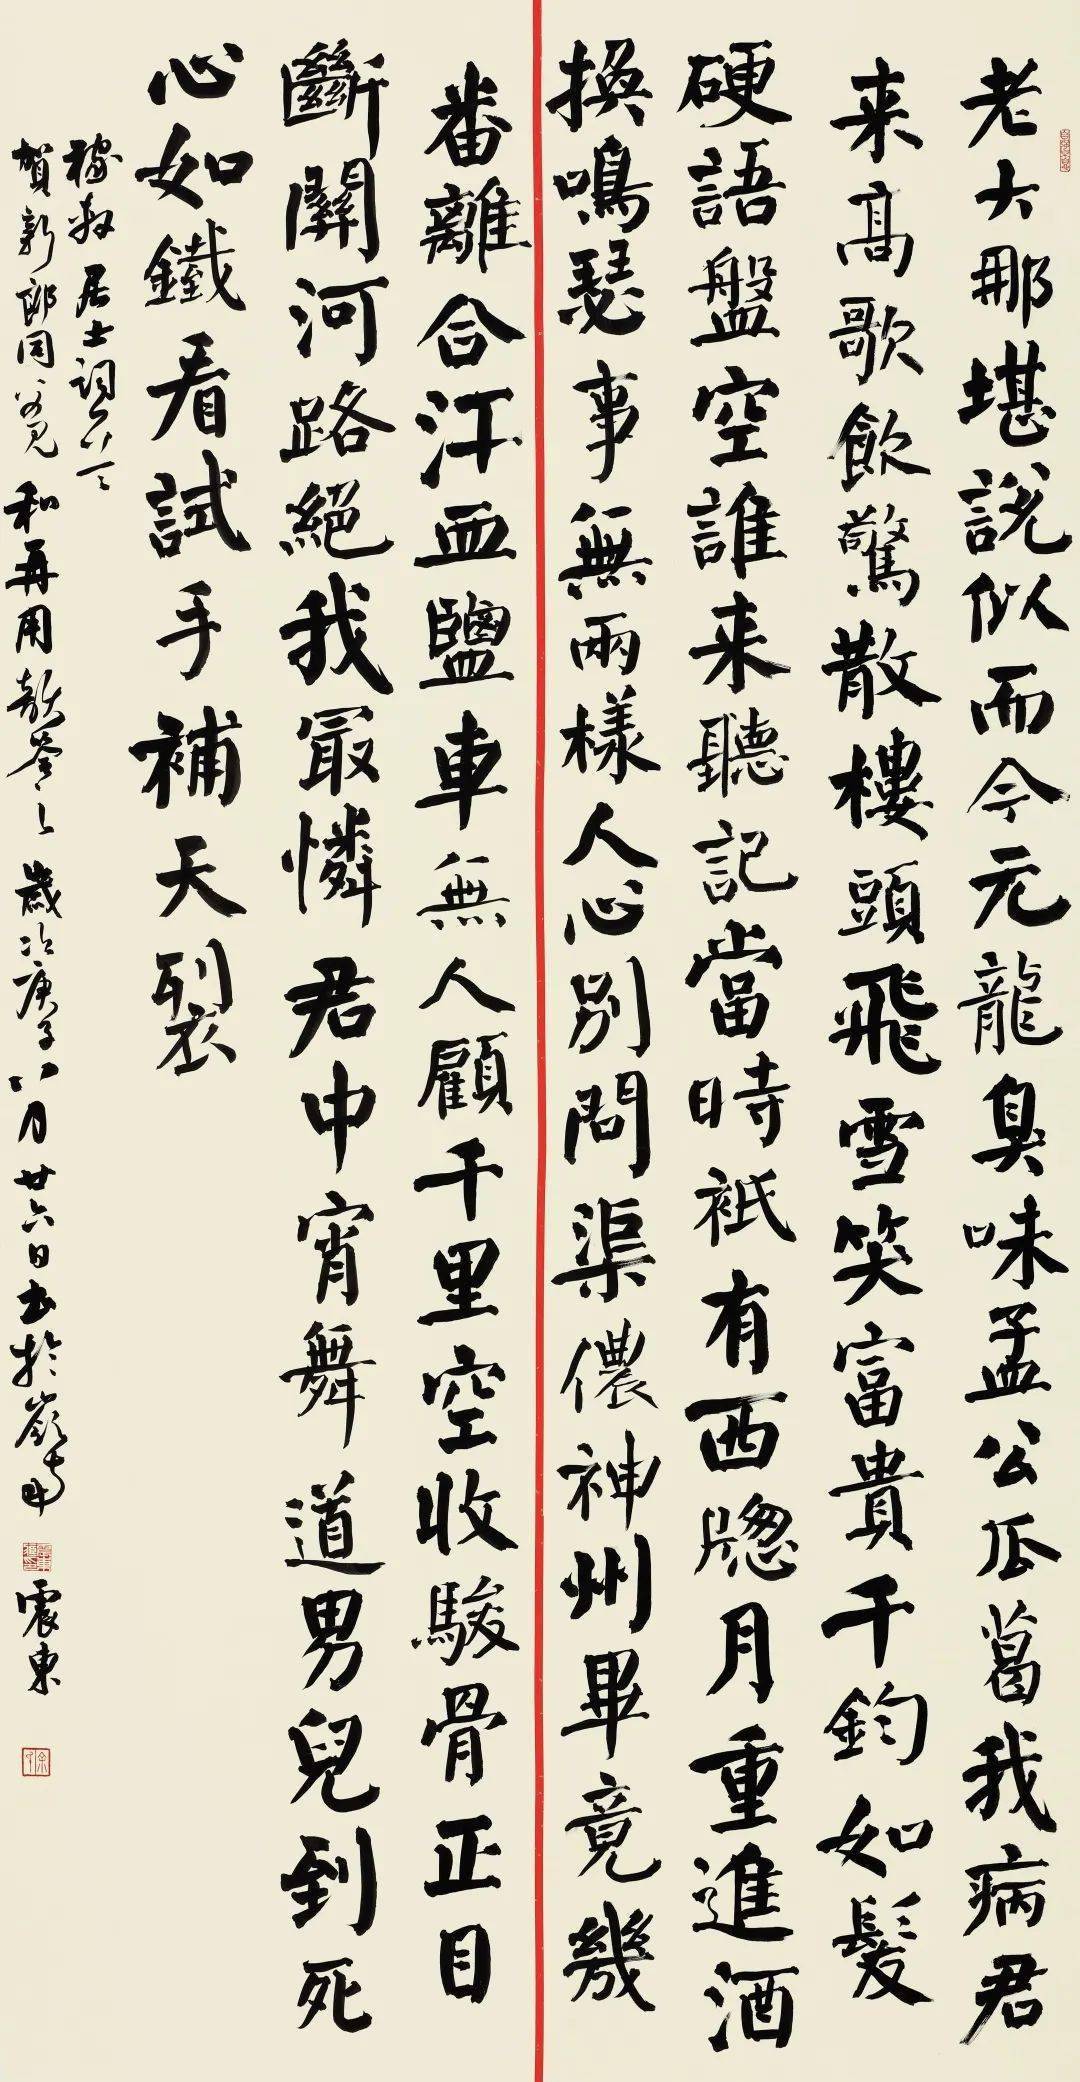 老大那堪說似而今元龍臭味孟公瓜葛我病君
来高歌飲驚散樓頭飛雪笑富貴千鈞如髮
硬語盤空誰来聽記當時衹有西牕月重進酒
換鳴瑟事無兩樣人心別問渠儂神州畢竟幾
番離合汗血鹽車無人顧千里空收駿骨正目
斷關河路絕我最憐君中宵舞道男兒到死
心如鐵看試手補天裂
稼軒居士詞
賀新郎同父見和再用韻答之歲次庚子八月廿六日書於嶺南震東